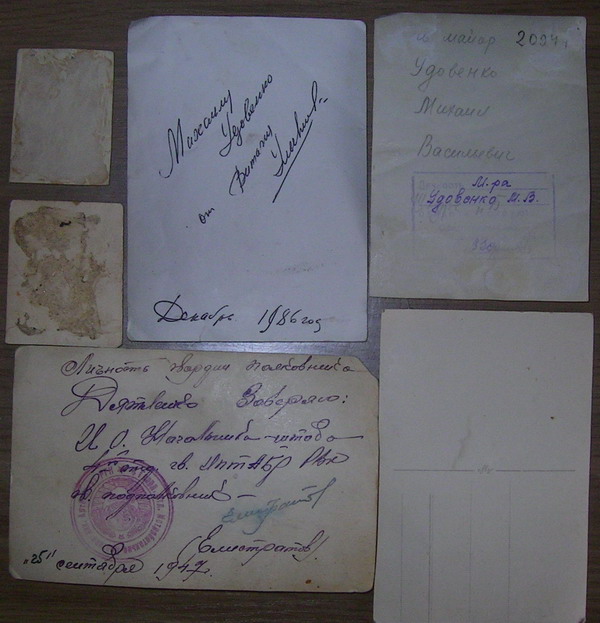 Михаилу
Удовенко
от Виталия
Декабрь 1986 год
майор
Удовенко
Михаил
Василиевич
М-ра
Удовенко, М.В.
Личность гвардии полковника
Дятленко Заверяю:
И О. Начальника штаба
гв. подполковник –
(Елистратов)
"25" сентября 1947.